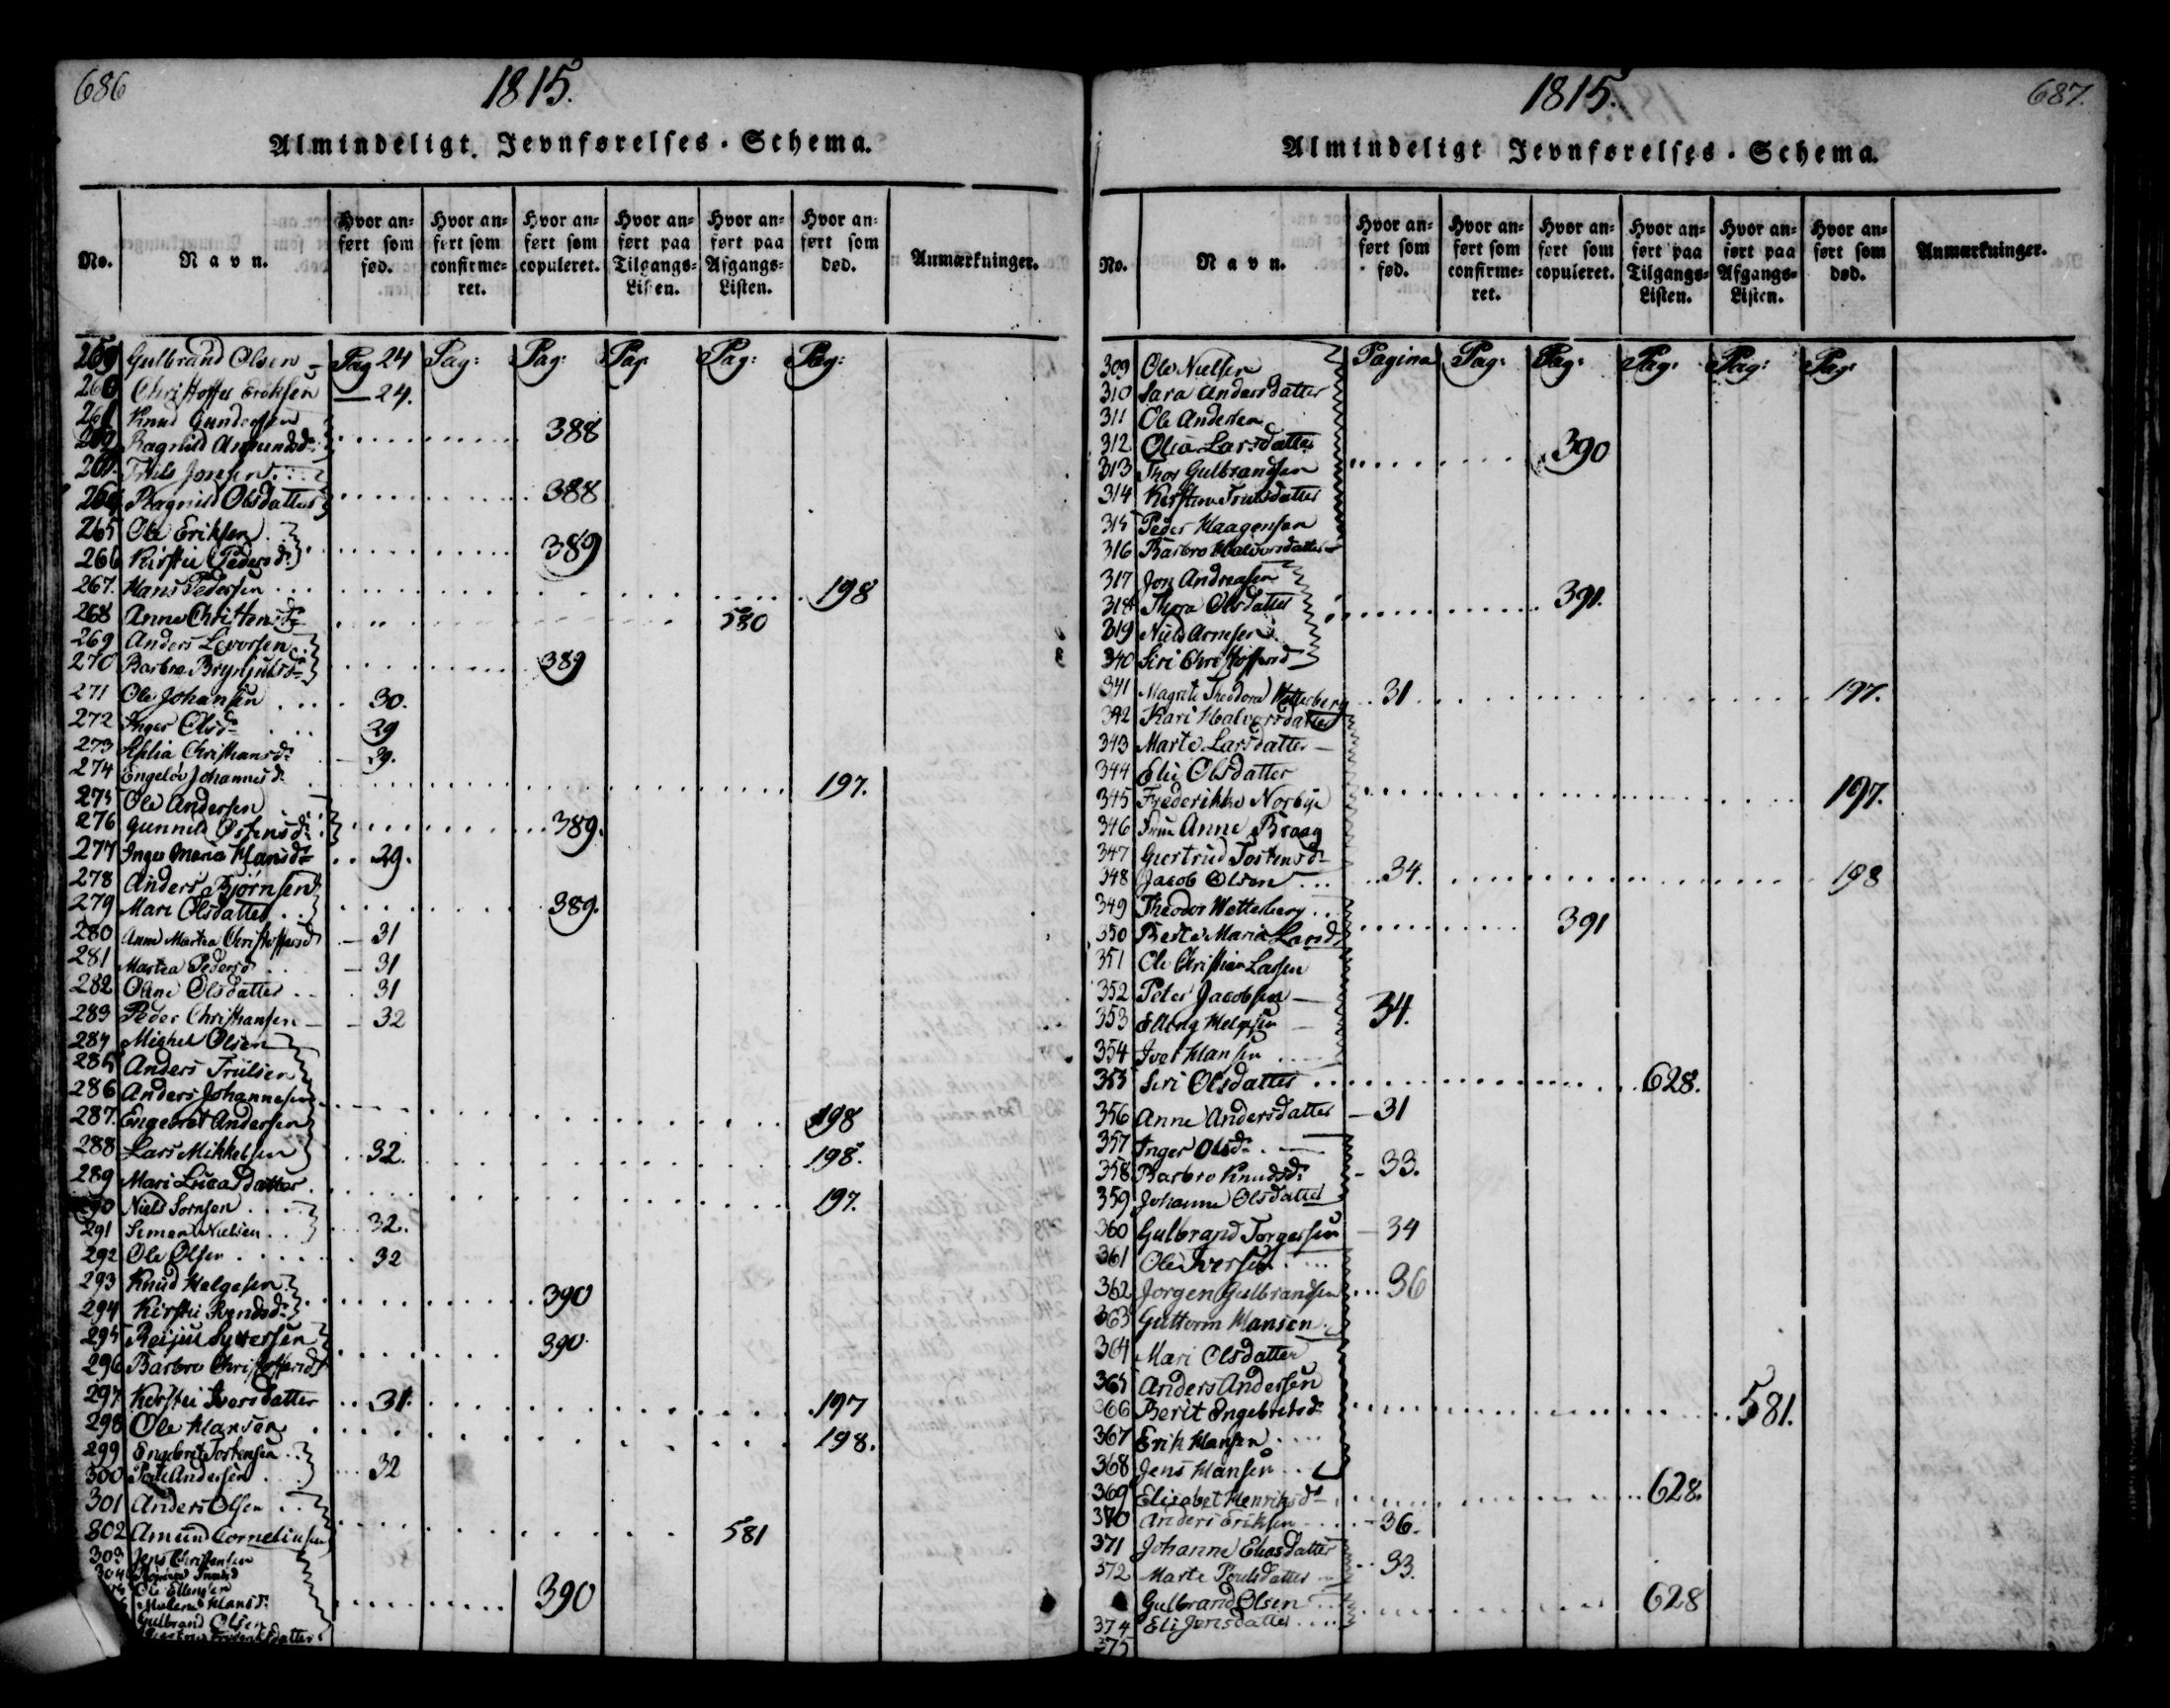 686
1815.
Almindeligt Jevnførelses-Schema.
No. Navn. Hvor anført som fød. Hvor anført som confirmeret. Hvor anført som copuleret. Hvor anført paa Tilgangs-Listen. Hvor anført paa Afgangs-Listen. Hvor anført som død. Anmærkninger.
259 Gulbrand Olsen Pag 24 Pag: Pag: Pag: Pag: Pag:
260 Christoffer Eriksen — 24.
261 Knud Gundersen
262 Ragnild Amundsd: 388
263 Nils Jonsen
264 Ragnild Olsdatter 388
265 Ole Eriksen
266 Kirstie Pedersd: 389
267. Hans Pedersen 198
268 Anne Christensd: 580
269 Anders Levorsen
270 Barbro Brynjulsd: 389
271 Ole Johansen 30.
272 Inger Olsd: 29
273 Christiansd: 29.
274 Engelov Johannesd: 197.
275 Ole Andersen
276 Gunnild Ostensd: 389.
277 Inger Maria Hansd: 29.
278 Anders Bjørnsen
279 Mari Olsdatter 389.
280 Anne Martea Christoffersd — 31
281 Martea Pedersd — 31
282 Oline Olsdatter 31
283 Peder Christiansen — 32
284 Michel Olsen
285 Anders Trulsen
286 Anders Johannesen
287. Engebret Andersen 198
288 Lars Mikkelsen 32. 198.
289 Mari Lucasdatter 197.
290 Niels Sornsen
291 Simen Nielsen 32.
292 Ole Olsen 32
293 Knud Helgesen
294 Kirstie Svendsd: 390
295 Reijul Syversen
296 Barbro Christoffersd 390
297 Kirstie Iversdatter 31. 197
298 Ole Hansen 198.
299 Engebret Tostensen
300 Poul Andersen 32
301 Anders Olsen
302 Amund Corneliusen 581
303 Jens Christensen
304
Ole Ellingsen
Hansd: 390
Gulbrand Olsen
687.
1815.
Almindeligt Jevnførelses-Schema.
No. Navn. Hvor anført som fød. Hvor anført som confirmeret. Hvor anført som copuleret. Hvor anført paa Tilgangs-Listen. Hvor anført paa Afgangs-Listen. Hvor anført som død. Anmærkninger.
309 Ole Nielsen Pagina Pag: Pag: Pag: Pag: Pag:
310 Sara Andersdatter
311 Ole Andersen
312 Olia Larsdatter 390
313 Thor Gulbrandsen
314 Kirstine Trulsdatter
315 Peder Haagensen
316 Barbro Halvorsdatter
317 Jon Andreasen
318 Thora Olsdatter 391.
319 Niels Arnesen
340 Siri Christoffersd
341 Magrete Theodora Wetterberg 31 197.
342 Kari Halvorsdatter
343 Marte Larsdatter
344 Elie Olsdatter
345 Frederikke Norbye 197.
346 Anne Braag
347 Giertrud Tostensd:
348 Jacob Olsen 34. 198
349 Theodor Wetterberg
350 Berte Maria Larsd 391
351 Ole Christian Larsen
352 Peter Jacobsen
353 Elling Helgesen 34.
354 Iver Hansen
355 Siri Olsdatter 628.
356 Anne Andersdatter — 31
357 Inger Olsd:
358 Barbro Knudsd: 33.
359 Johanne Olsdatter
360 Gulbrand Torgersen — 34
361 Ole Iversen
362 Jorgen Gulbrandsen 36
363 Guttorm Hansen
364 Mari Olsdatter
365 Anders Andersen
366 Berit Engebretsd: 581.
367 Erik Hansen
368 Jens Hansen
369 Elisabet Henriksd: 628.
370 Anders Eriksen 36.
371 Johanne Eliasdatter
372 Marte Poulsdatter 33.
Gulbrand Olsen 628
374 Eli Jensdatter
375